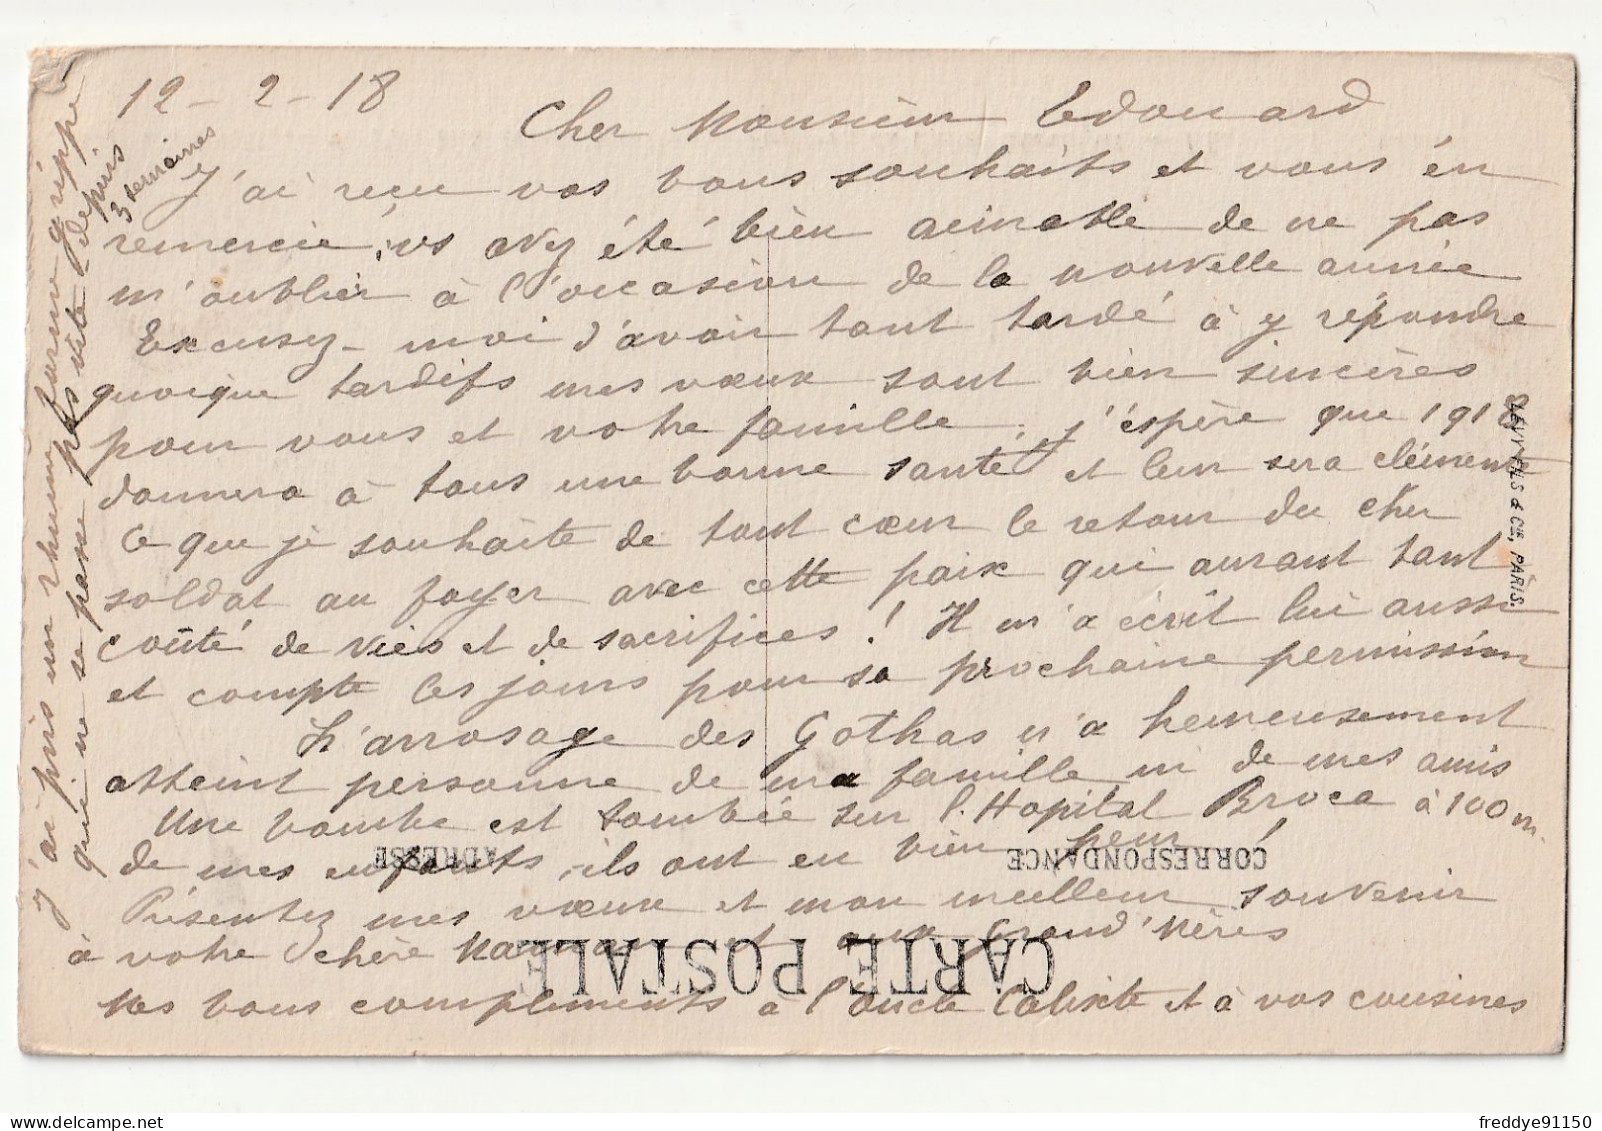 12 - 2 - 18
Cher Monsieur Edouard
J'ai reçu vos bons souhaits et vous én
remercie, vs avez été bien aimable de ne pas
m'oublier à l'occasion de la nouvelle année
Excusez-moi d'avoir tant tardé à y répondre
quoique tardifs mes vœux sont bien sincères
pour vous et votre famille, j'éspère que 1918
donnera à tous une bonne santé et leur sera clémente
Ce que je souhaite de tout cœur le retour du cher
soldat au foyer avec cette paix qui aurant tant
coûté de vies et de sacrifices ! Il m'a écrit lui aussi
et compte les jours pour sa prochaine permission
L'arrosage des Gothas n'a heureusement
atteint personne de ma famille ni de mes amis
Une bombe est tombée sur l'Hopital Broca à 100 m.
de mes enfants, ils ont eu bien peur
Présentez mes vœux et mon meilleur souvenir
à votre chère Maman et aux Grand'Mères
Mes bons compliments à l'oncle Calixte et à vos cousines
j'ai pris un rhume forme grippe
qui ne se passe pas vite - depuis
3 semaines
CORRESPONDANCE
ADRESSE
CARTE POSTALE
LÉVY FILS & Cie, PARIS.
freddye91150